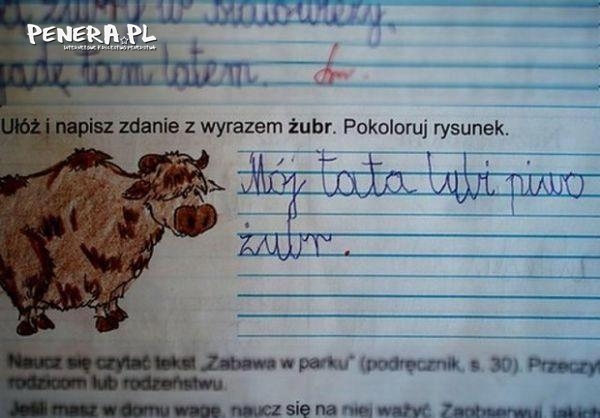 PENERA.PL
INTERNETOWE KRÓLESTWO PENERSTWA
żubry w Białowieży.
jadę tam latem.
Ułóż i napisz zdanie z wyrazem żubr. Pokoloruj rysunek.
Mój tata lubi piwo
żubr.
Naucz się czytać tekst „Zabawa w parku" (podręcznik, s. 30). Przeczyt
rodzicom lub rodzeństwu.
Jeśli masz w domu wagę, naucz się na niej ważyć. Zaobserwuj, jakich